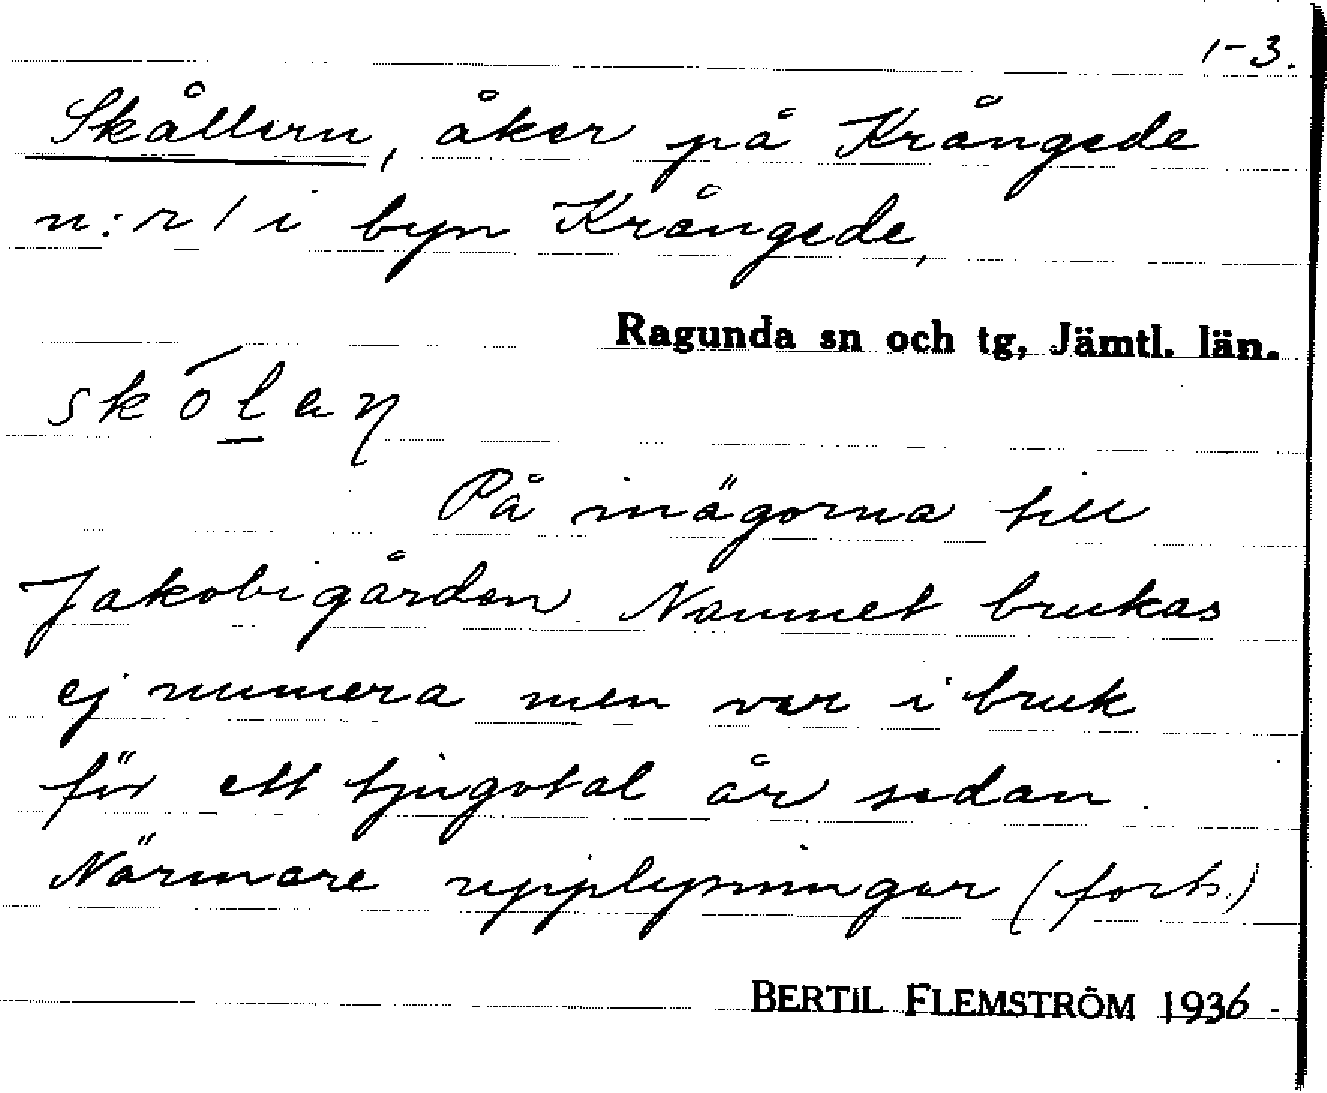 1-3.
Skållern, åker på Krångede
n:r 1 i byn Krångede,
Ragunda sn och tg, Jämtl. län.
skólan
På inägorna till
Jakobigården Namnet brukas
ej numera men var i bruk
för ett tjugotal år sedan.
Närmare upplysningar (forts.)
BERTIL FLEMSTRÖM 1936